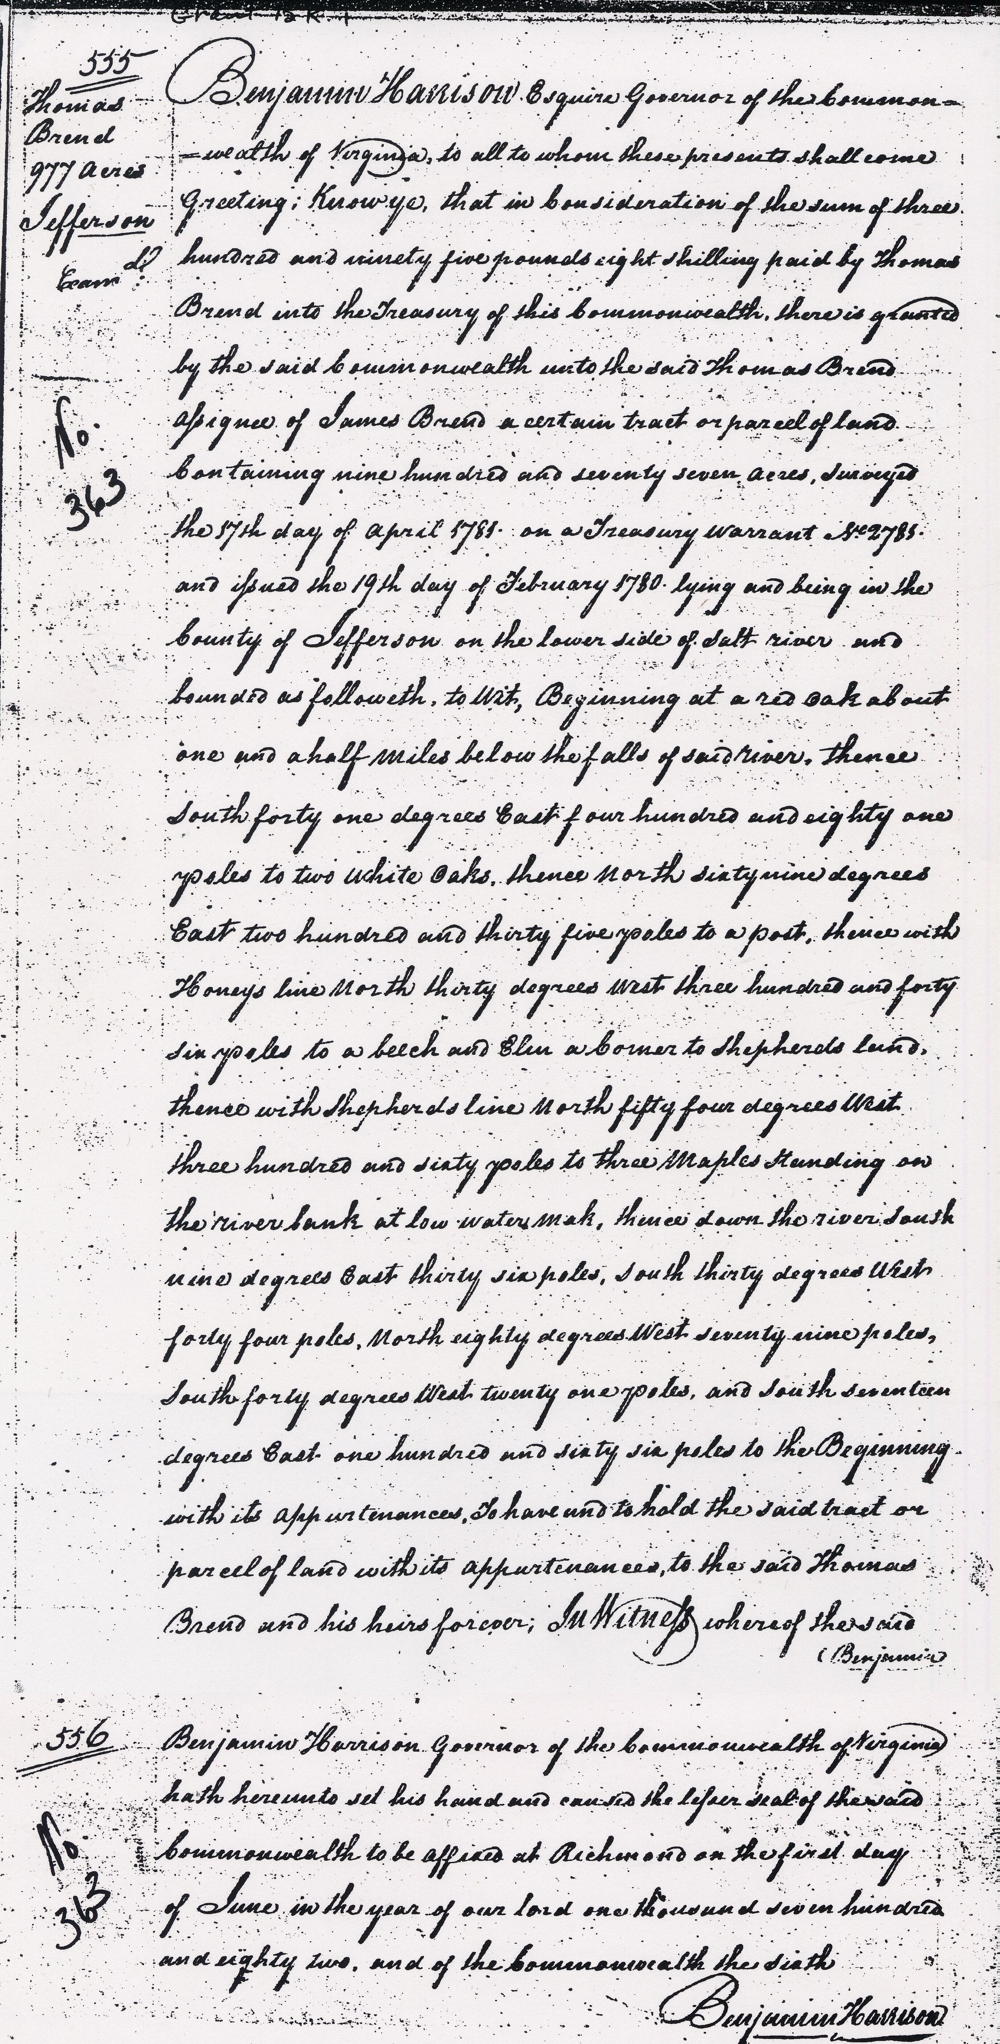 555
Thomas
Brend
977 Acres
Jefferson
Exam.d
No.
363
Benjamin Harrison Esquire Governor of the Common=
=wealth of Virginia, to all to whom these presents shall come
Greeting; Know ye, that in Consideration of the sum of three
hundred and ninety five pounds eight shilling paid by Thomas
Brend into the Treasury of this Commonwealth, there is granted
by the said Commonwealth unto the said Thomas Brend
assignee of James Brend a certain tract or parcel of land
Containing nine hundred and seventy seven Acres, Surveyed
the 17th day of April 1781. on a Treasury Warrant No. 2781.
and issued the 19th day of February 1780. lying and being in the
County of Jefferson on the lower side of Salt river and
bounded as followeth, to Wit, Beginning at a red Oak about
one and a half Miles below the falls of said river, thence
South forty one degrees East four hundred and eighty one
poles to two White Oaks, thence North sixty nine degrees
East two hundred and thirty five poles to a post, thence with
Honeys line North thirty degrees West three hundred and forty
six poles to a beech and Elm a Corner to Shepherds land,
thence with Shepherds line North fifty four degrees West
three hundred and sixty poles to three Maples Standing on
the river bank at low water mak, thence down the river South
nine degrees East thirty six poles, South thirty degrees West
forty four poles, North eighty degrees West seventy nine poles,
South forty degrees West twenty one poles, and South seventeen
degrees East one hundred and sixty six poles to the Beginning
with its appurtenances, To have and to hold the said tract or
parcel of land with its appurtenances, to the said Thomas
Brend and his heirs forever; In Witness whereof the said
(Benjamin
556
No.
363
Benjamin Harrison Governor of the Commonwealth of Virginia
hath hereunto set his hand and caused the lesser seal of the said
Commonwealth to be affixed at Richmond on the first day
of June in the year of our lord one thousand seven hundred
and eighty two, and of the Commonwealth the sixth
Benjamin Harrison